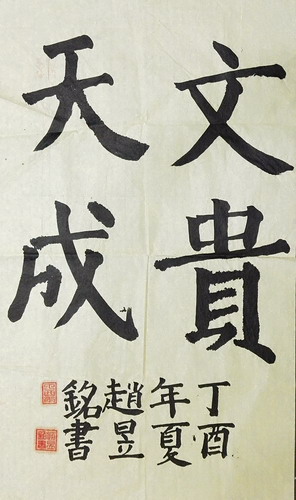 文貴
天成
丁酉
年夏
趙昱
銘書